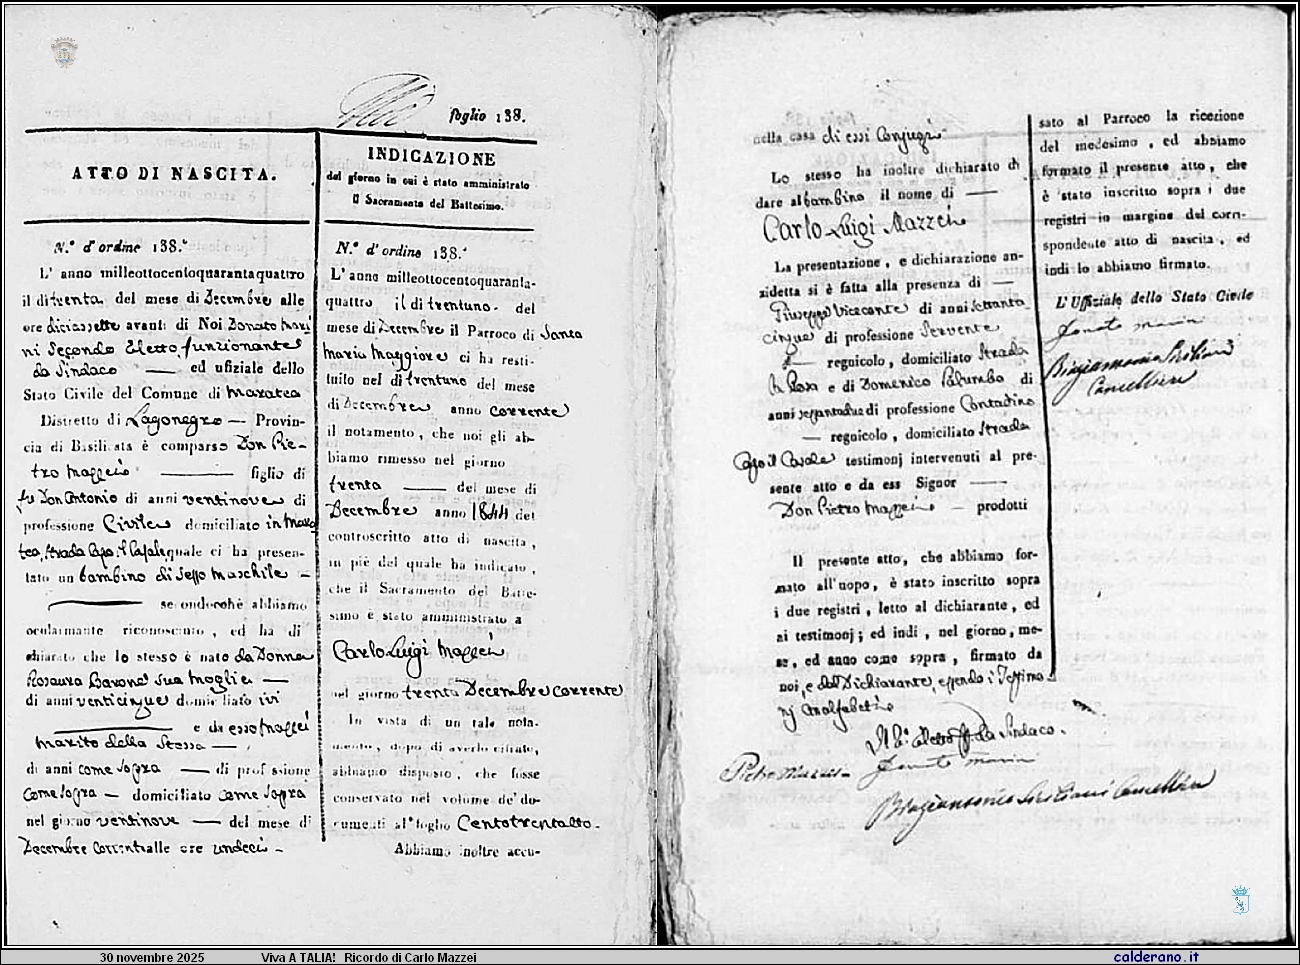 foglio 138.
ATTO DI NASCITA.
N.° d'ordine 138.
L'anno milleottocentoquarantaquattro
il dì trenta del mese di Decembre alle
ore diciassette avanti di Noi Donato Mari
ni Secondo Eletto funzionante
da Sindaco — ed ufiziale dello
Stato Civile del Comune di Maratea
Distretto di Lagonegro — Provin-
cia di Basilicata è comparso Don Pie-
tro Mazzei — figlio di
fu Don Antonio di anni ventinove di
professione Civile domiciliato in Mara
tea, Strada Capo il Casale quale ci ha presen-
tato un bambino di sesso Maschile —
— secondochè abbiamo
ocularmante riconosciuto, ed ha di
chiarato che lo stesso è nato da Donna
Rosaura Barona sua moglie —
di anni venticinque domiciliato ivi
— e da esso Mazzei
Marito della Stessa —
di anni come sopra — di professione
come sopra — domiciliato come sopra
nel giorno ventinove — del mese di
Decembre corrente alle ore undeci -
INDICAZIONE
del giorno in cui è stato amministrato
il Sacramento del Battesimo.
N.° d'ordine 138.
L'anno milleottocentoquaranta-
quattro il dì trentuno del
mese di Decembre il Parroco di Santa
Maria Maggiore ci ha resti-
tuito nel dì trentuno del mese
di Decembre anno corrente
il notamento, che noi gli ab-
biamo rimesso nel giorno
trenta — del mese di
Decembre anno 1844 del
controscritto atto di nascita,
in piè del quale ha indicato,
che il Sacramento del Batte-
simo è stato amministrato a
Carlo Luigi Mazzei
nel giorno trenta Decembre corrente
In vista di un tale nota-
mento, dopo di averlo cifrato,
abbiamo disposto, che fosse
conservato nel volume de' do-
cumenti al foglio Centotrentotto.
Abbiamo inoltre accu-
nella casa di essi Conjugi
Lo stesso ha inoltre dichiarato di
dare al bambino il nome di —
Carlo Luigi Mazzei
La presentazione, e dichiarazione an-
zidetta si è fatta alla presenza di —
Giuseppe Viceconte di anni settanta
cinque di professione Servente
— regnicolo, domiciliato Strada
e di Domenico Palumbo di
anni sessantadue di professione Contadino
— regnicolo, domiciliato Strada
Capo il Casale testimonj intervenuti al pre-
sente atto e da ess Signor —
Don Pietro Mazzei — prodotti
Il presente atto, che abbiamo for-
mato all'uopo, è stato inscritto sopra
i due registri, letto al dichiarante, ed
ai testimonj; ed indi, nel giorno, me-
se, ed anno come sopra, firmato da
noi, e dal Dichiarante, essendo i Testimo
nj Analfabeti
Il 2° eletto ff da Sindaco.
Pietro Mazzei
Donato Marini
Biagiantonio Siciliani Cancelliere
sato al Parroco la ricezione
del medesimo, ed abbiamo
formato il presente atto, che
è stato inscritto sopra i due
registri in margine del corri-
spondente atto di nascita, ed
indi lo abbiamo firmato.
L'Uffiziale dello Stato Civile
Donato Marini
Biagiantonio Siciliani
Cancelliere
30 novembre 2025 Viva A TALIA! Ricordo di Carlo Mazzei calderano.it